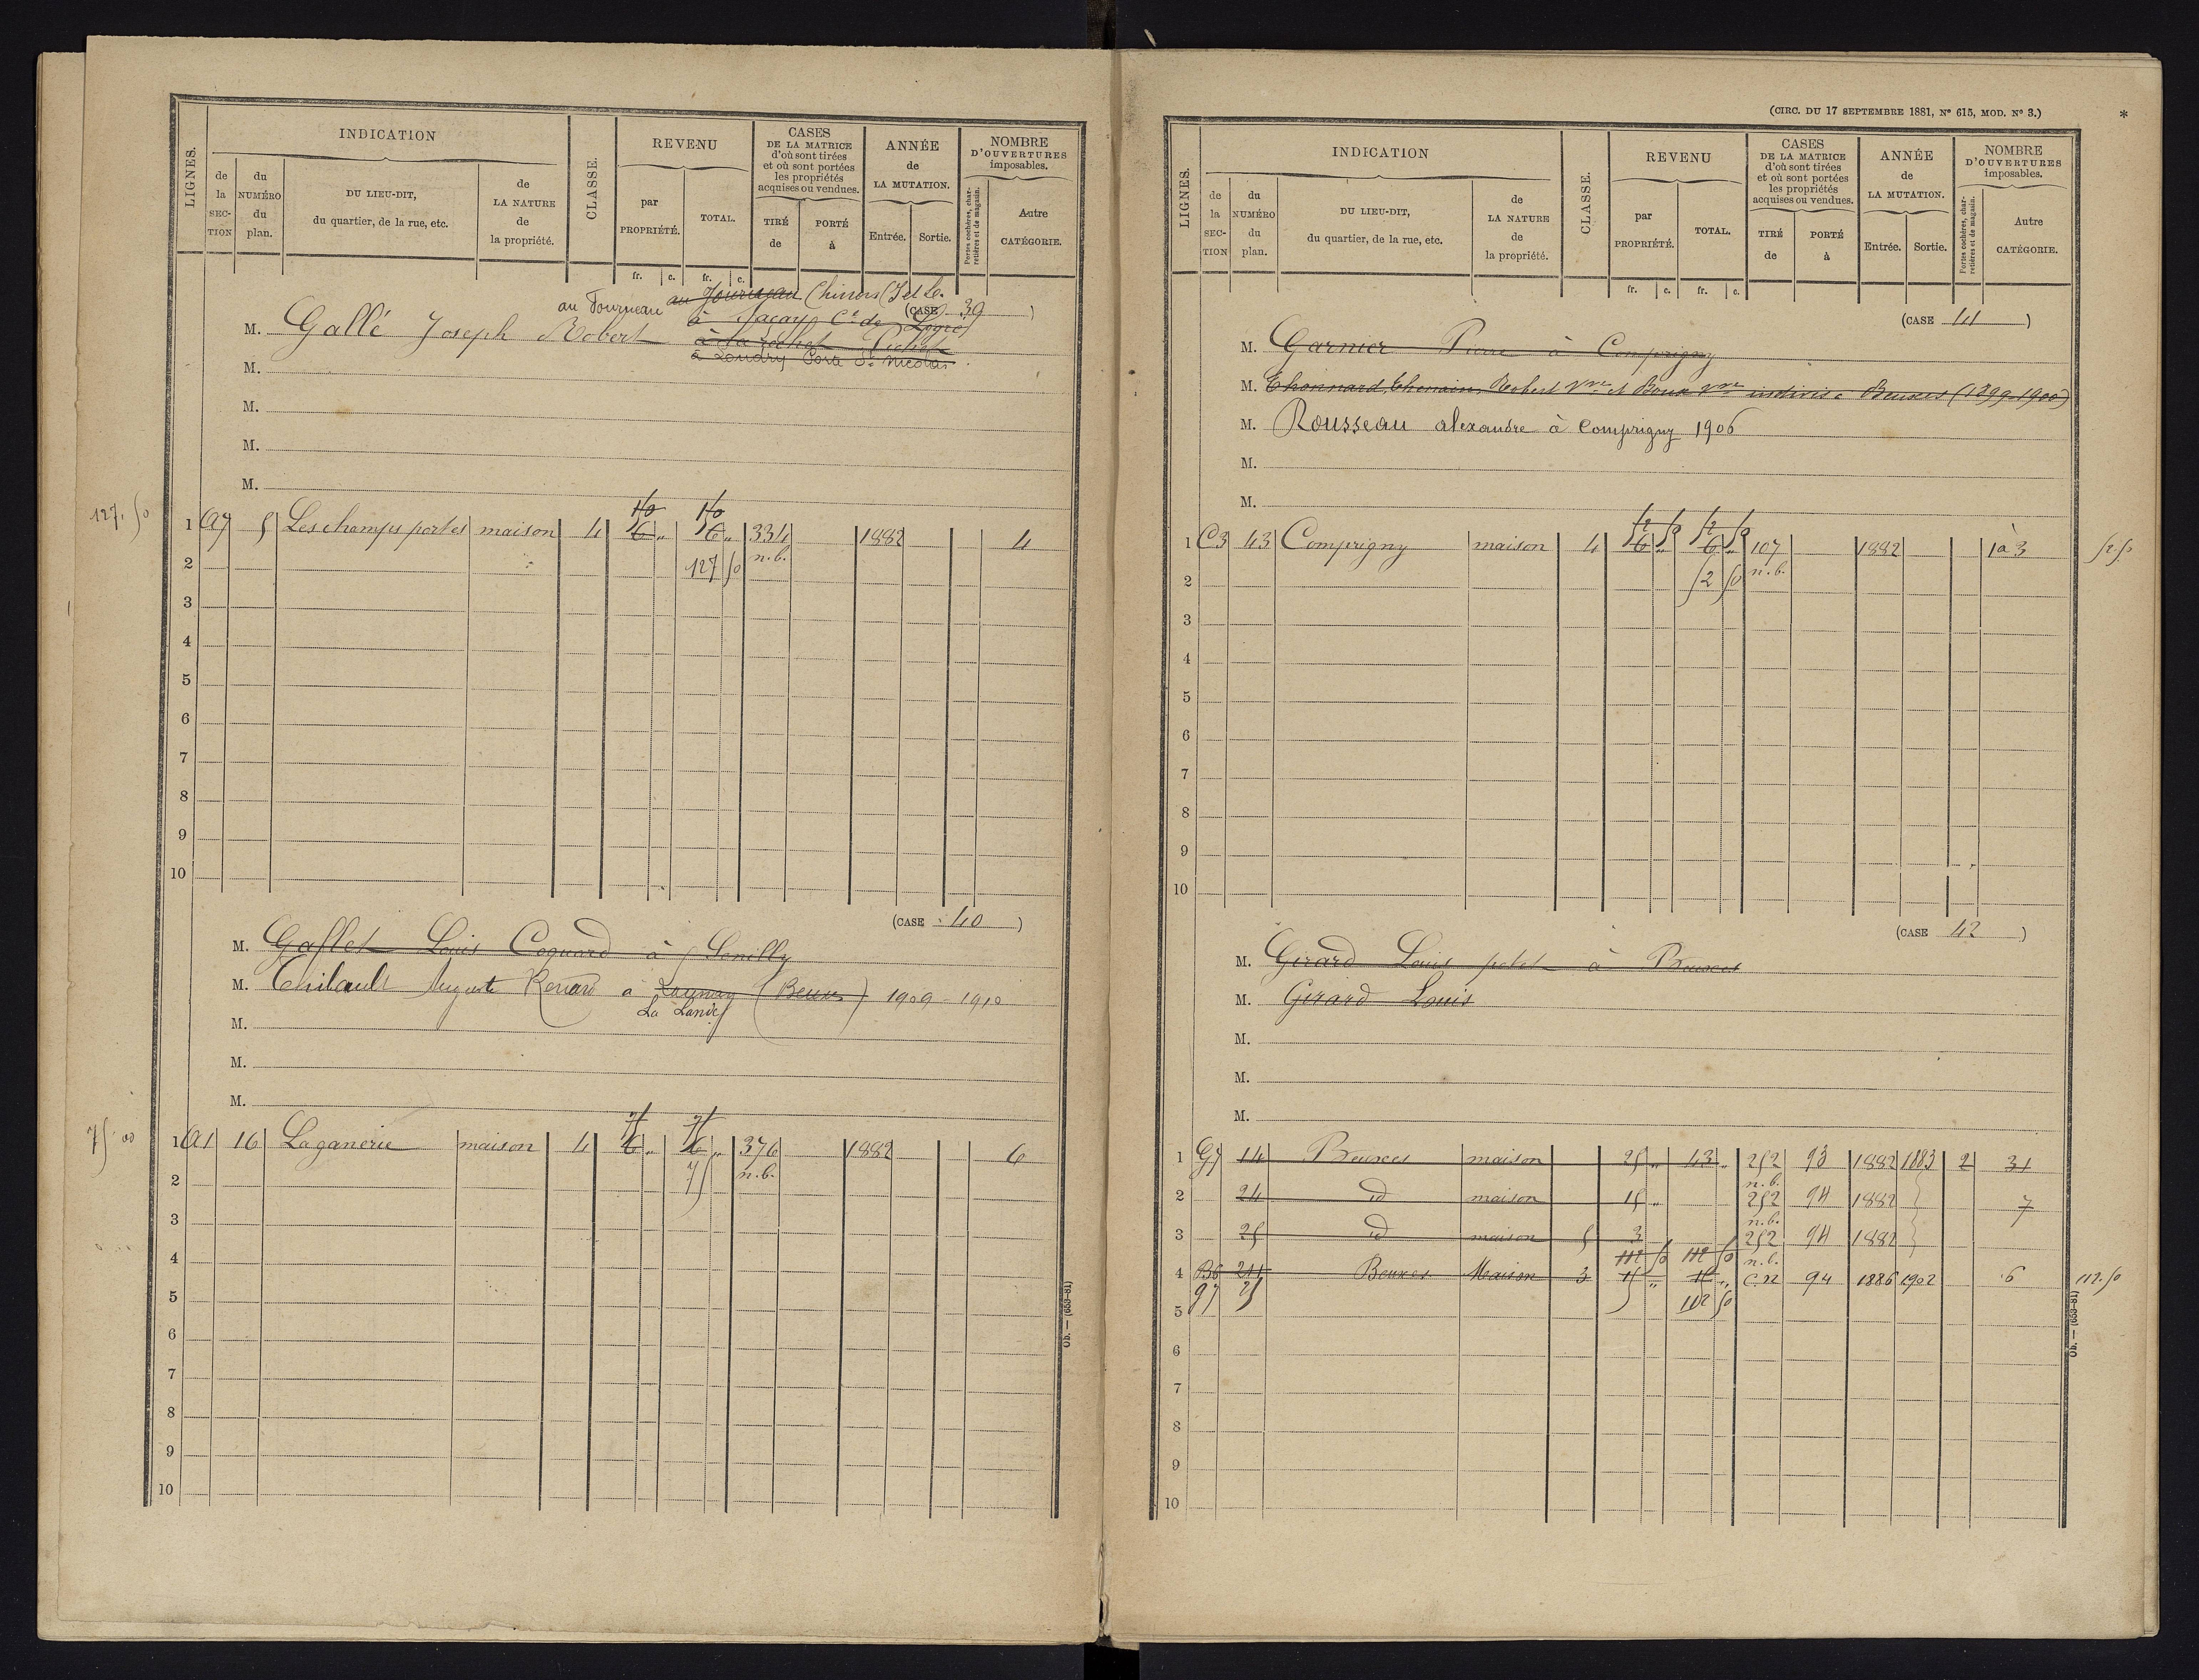 LIGNES.
INDICATION
de la SECTION
du NUMÉRO du plan.
DU LIEU-DIT, du quartier, de la rue, etc.
de LA NATURE de la propriété.
CLASSE.
REVENU
par PROPRIÉTÉ.
TOTAL.
CASES DE LA MATRICE d'où sont tirées et où sont portées les propriétés acquises ou vendues.
TIRÉ de
PORTÉ à
ANNÉE de LA MUTATION.
Entrée.
Sortie.
NOMBRE D'OUVERTURES imposables.
Portes cochères, charretières et de magasin.
Autre CATÉGORIE.
fr. c. fr. c.
au Fourneau au Fourneau Chinon
(CASE 39)
M. Gallé Joseph Robert à Jacay Cne de
à la rochet Pichet
à Loudry Porte St Nicolas
M.
M.
M.
M.
127.50
1 A7 5 Les champs portes maison 4 6 " 6 " 334 1882 4
2 127 50 n.b.
3
4
5
6
7
8
9
10
(CASE 40)
M. Gallet Louis Coquard à Senilly
M. Thibault Auguste Renard a Launay (Beuxes) 1909-1910
La Lande
M.
M.
M.
75.00
75 75
1 A1 16 La ganerie maison 4 6 " 6 " 376 1882 6
2 75 n.b.
3
4
5
6
7
8
9
10
Ob. — (653-81)
(CIRC. DU 17 SEPTEMBRE 1881, No 615, MOD. No 3.)
*
LIGNES.
INDICATION
de la SECTION
du NUMÉRO du plan.
DU LIEU-DIT, du quartier, de la rue, etc.
de LA NATURE de la propriété.
CLASSE.
REVENU
par PROPRIÉTÉ.
TOTAL.
CASES DE LA MATRICE d'où sont tirées et où sont portées les propriétés acquises ou vendues.
TIRÉ de
PORTÉ à
ANNÉE de LA MUTATION.
Entrée.
Sortie.
NOMBRE D'OUVERTURES imposables.
Portes cochères, charretières et de magasin.
Autre CATÉGORIE.
fr. c. fr. c.
(CASE 41)
M. Garnier Pierre à Comprigny
M. Thonnard, Robert Vve et Roux Vve indivis à Beuxes (1899-1900)
M. Rousseau alexandre à Comprigny 1906
M.
M.
52 50 52 50
1 C3 43 Comprigny maison 4 6 " 6 " 107 1882 1 à 3 52.50
2 52 50 n.b.
3
4
5
6
7
8
9
10
(CASE 42)
M. Girard Louis petit à Beuxes
M. Girard Louis
M.
M.
M.
1 G7 14 Beuxes maison 25 " 43 " 252 93 1882 1883 2 31
n.b.
2 24 id maison 15 " 252 94 1882 7
n.b.
3 25 id maison 5 3 252 94 1882
112 50 112 50 n.b.
4 B6 211 Beuxes Maison 3 15 " " C.N 94 1886 1902 6 112.50
G7 25
5 112 50
6
7
8
9
10
Ob. — (653-81)